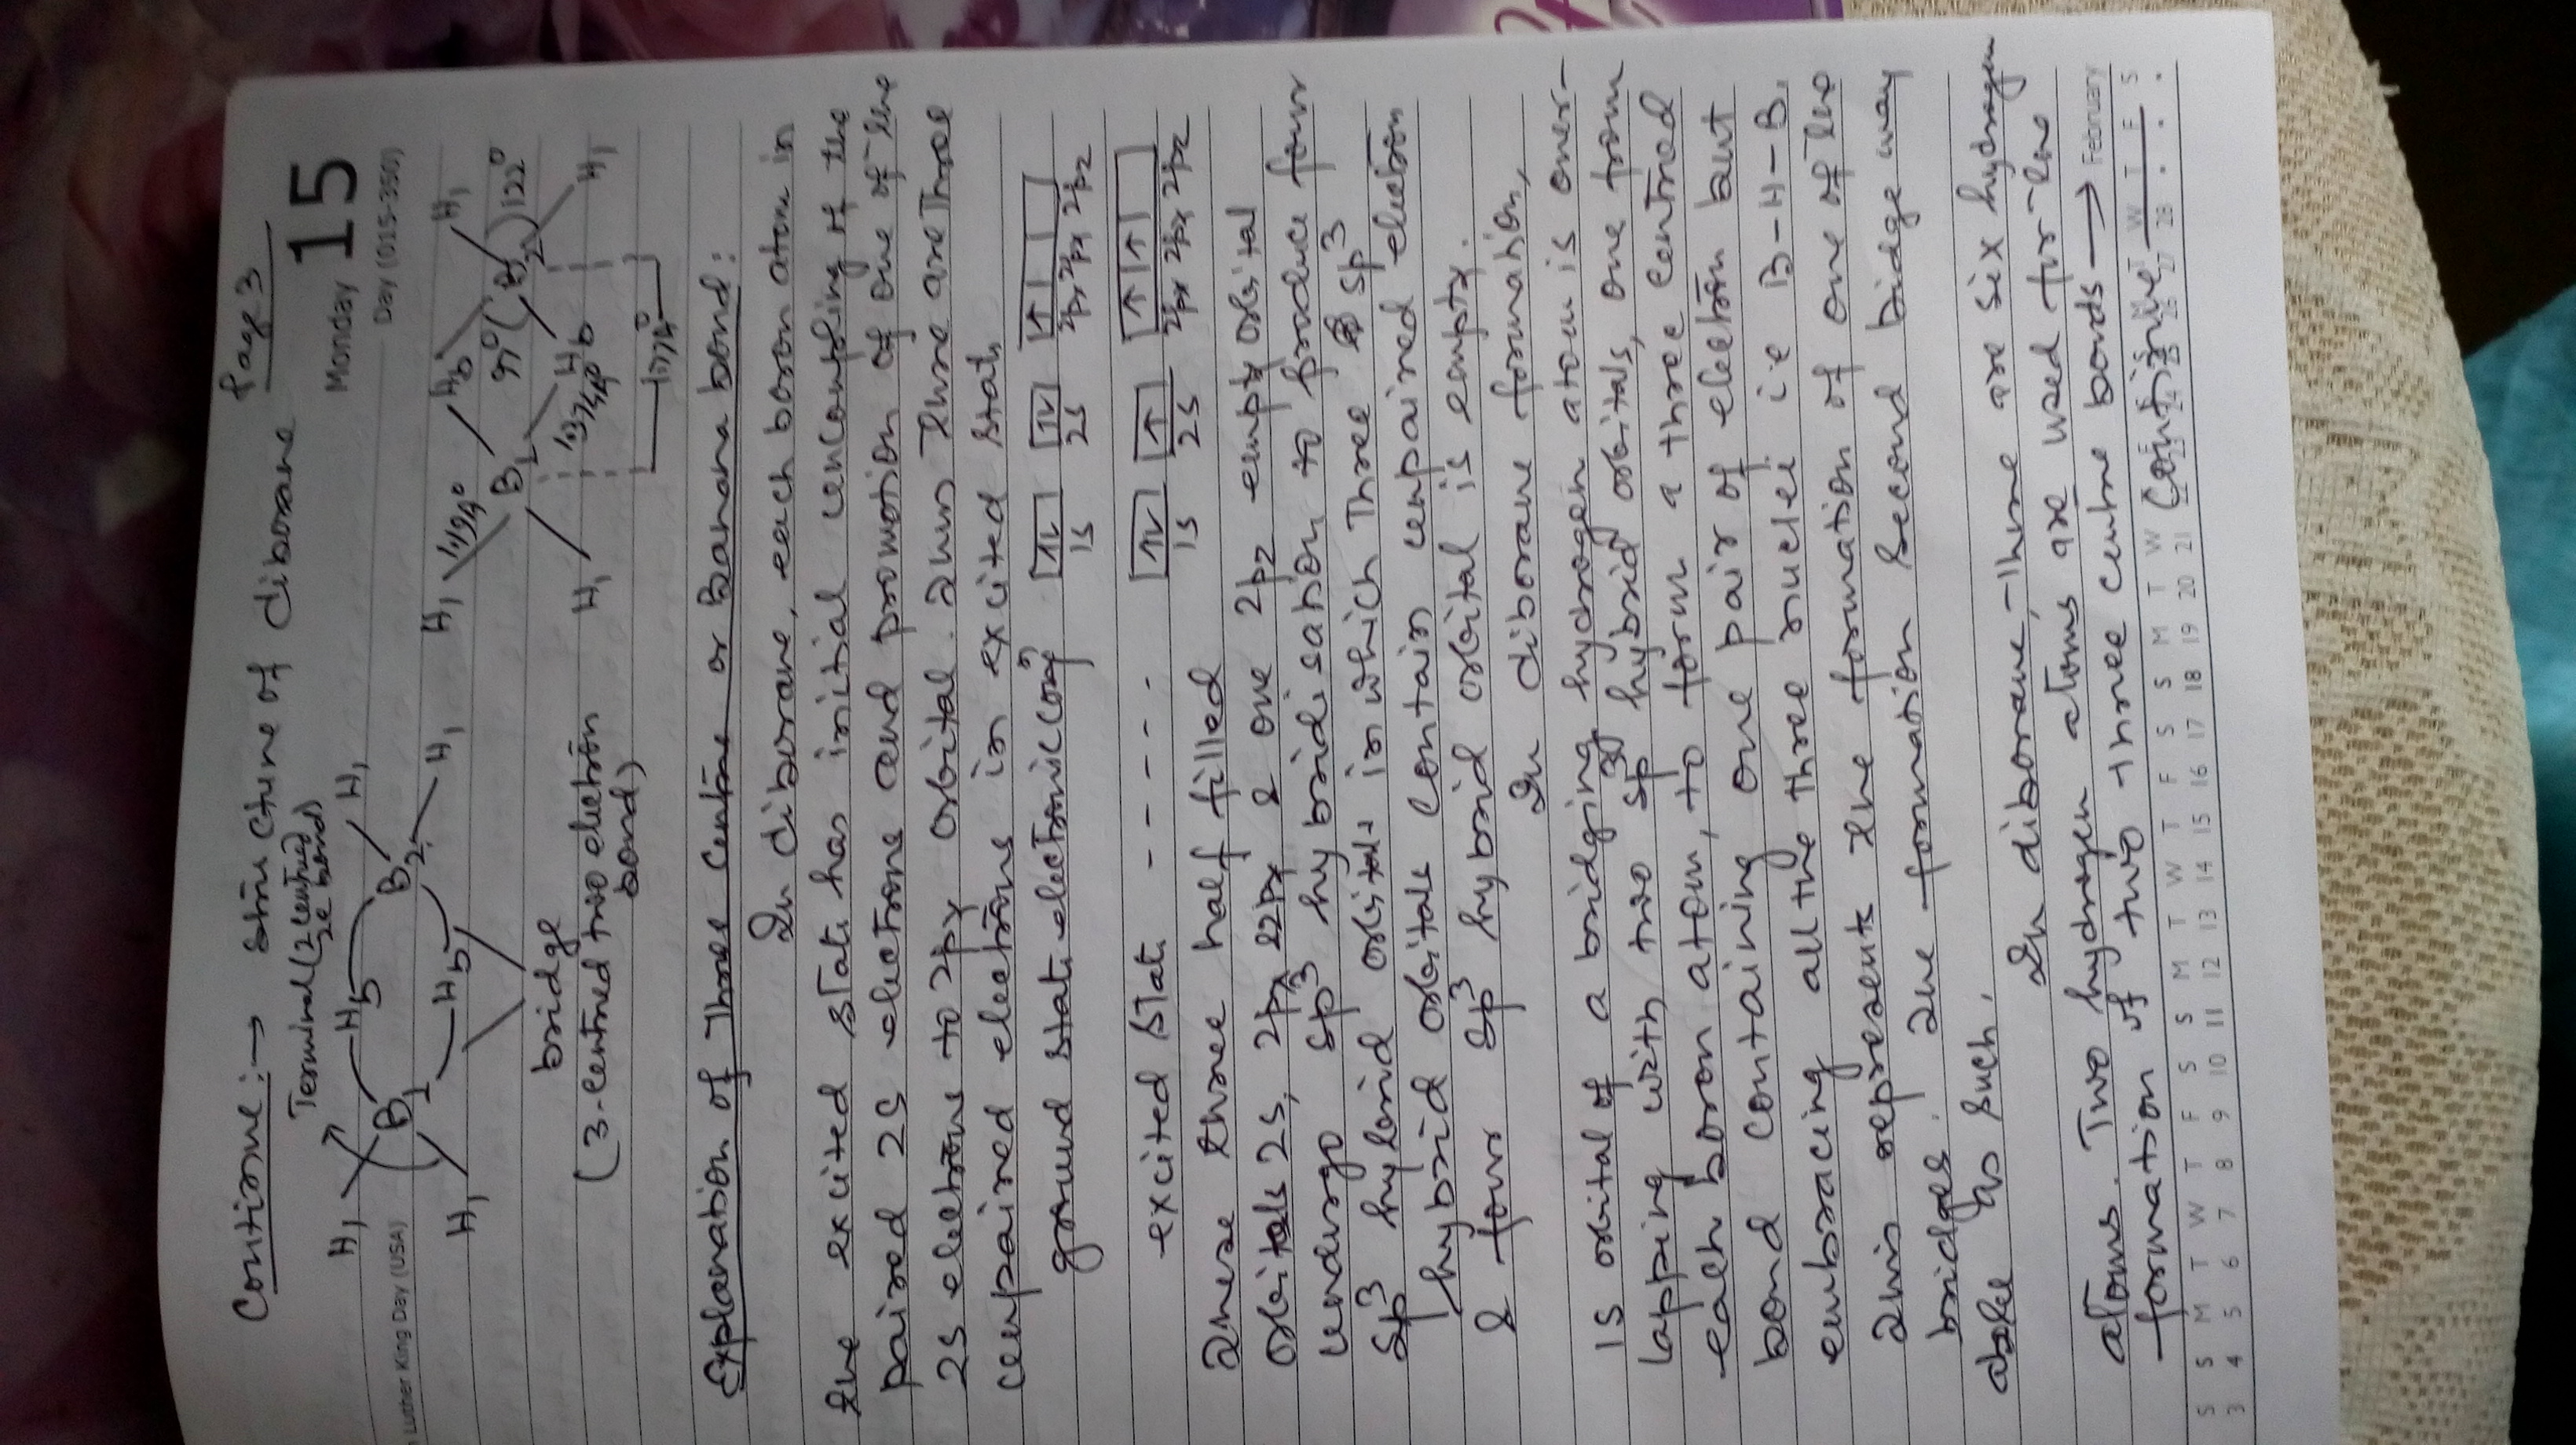 Continue:→ structure of diborane Page 3
Monday 15
Day (015-350)
Luther King Day (USA)
Terminal (2 centred
2e bond)
H1 H1
B1 Hb B2
Hb
H1 H1
bridge
(3-centred two electron
bond)
H1 1.19A° Hb H1
B1 97° B2 122°
1.37A° Hb
H1 H1
1.77A°
Explanation of Three Centre or Banana bond:
In diborane, each boron atom in
the excited state has initial uncoupling of the
paired 2s electrons and promotion of one of the
2s electrons to 2py orbital. Thus there are three
unpaired electrons in excited state
ground state electronic conf^n 1s 2s 2px 2py 2pz
excited state - - - - - 1s 2s 2px 2py 2pz
These three half filled
orbitals 2s, 2px & 2py & one 2pz empty orbital
undergo sp3 hybridisation to produce four
sp3 hybrid orbitals in which three sp3
hybrid orbitals contain unpaired electron
& four sp3 hybrid orbital is empty.
In diborane formation,
1s orbital of a bridging hydrogen atom is over-
lapping with two sp3 hybrid orbitals, one from
each boron atom, to form a three centred
bond containing one pair of electron but
embracing all the three nuclei ie B-H-B.
This represents the formation of one of the
bridges. The formation second bridge way
also as such.
In diborane, there are six hydrogen
atoms. Two hydrogen atoms are used for the
formation of two three centre bonds →
Continue
February
S S M T W T F S S M T W T F S S M T W T F S
3 4 5 6 7 8 9 10 11 12 13 14 15 16 17 18 19 20 21 28